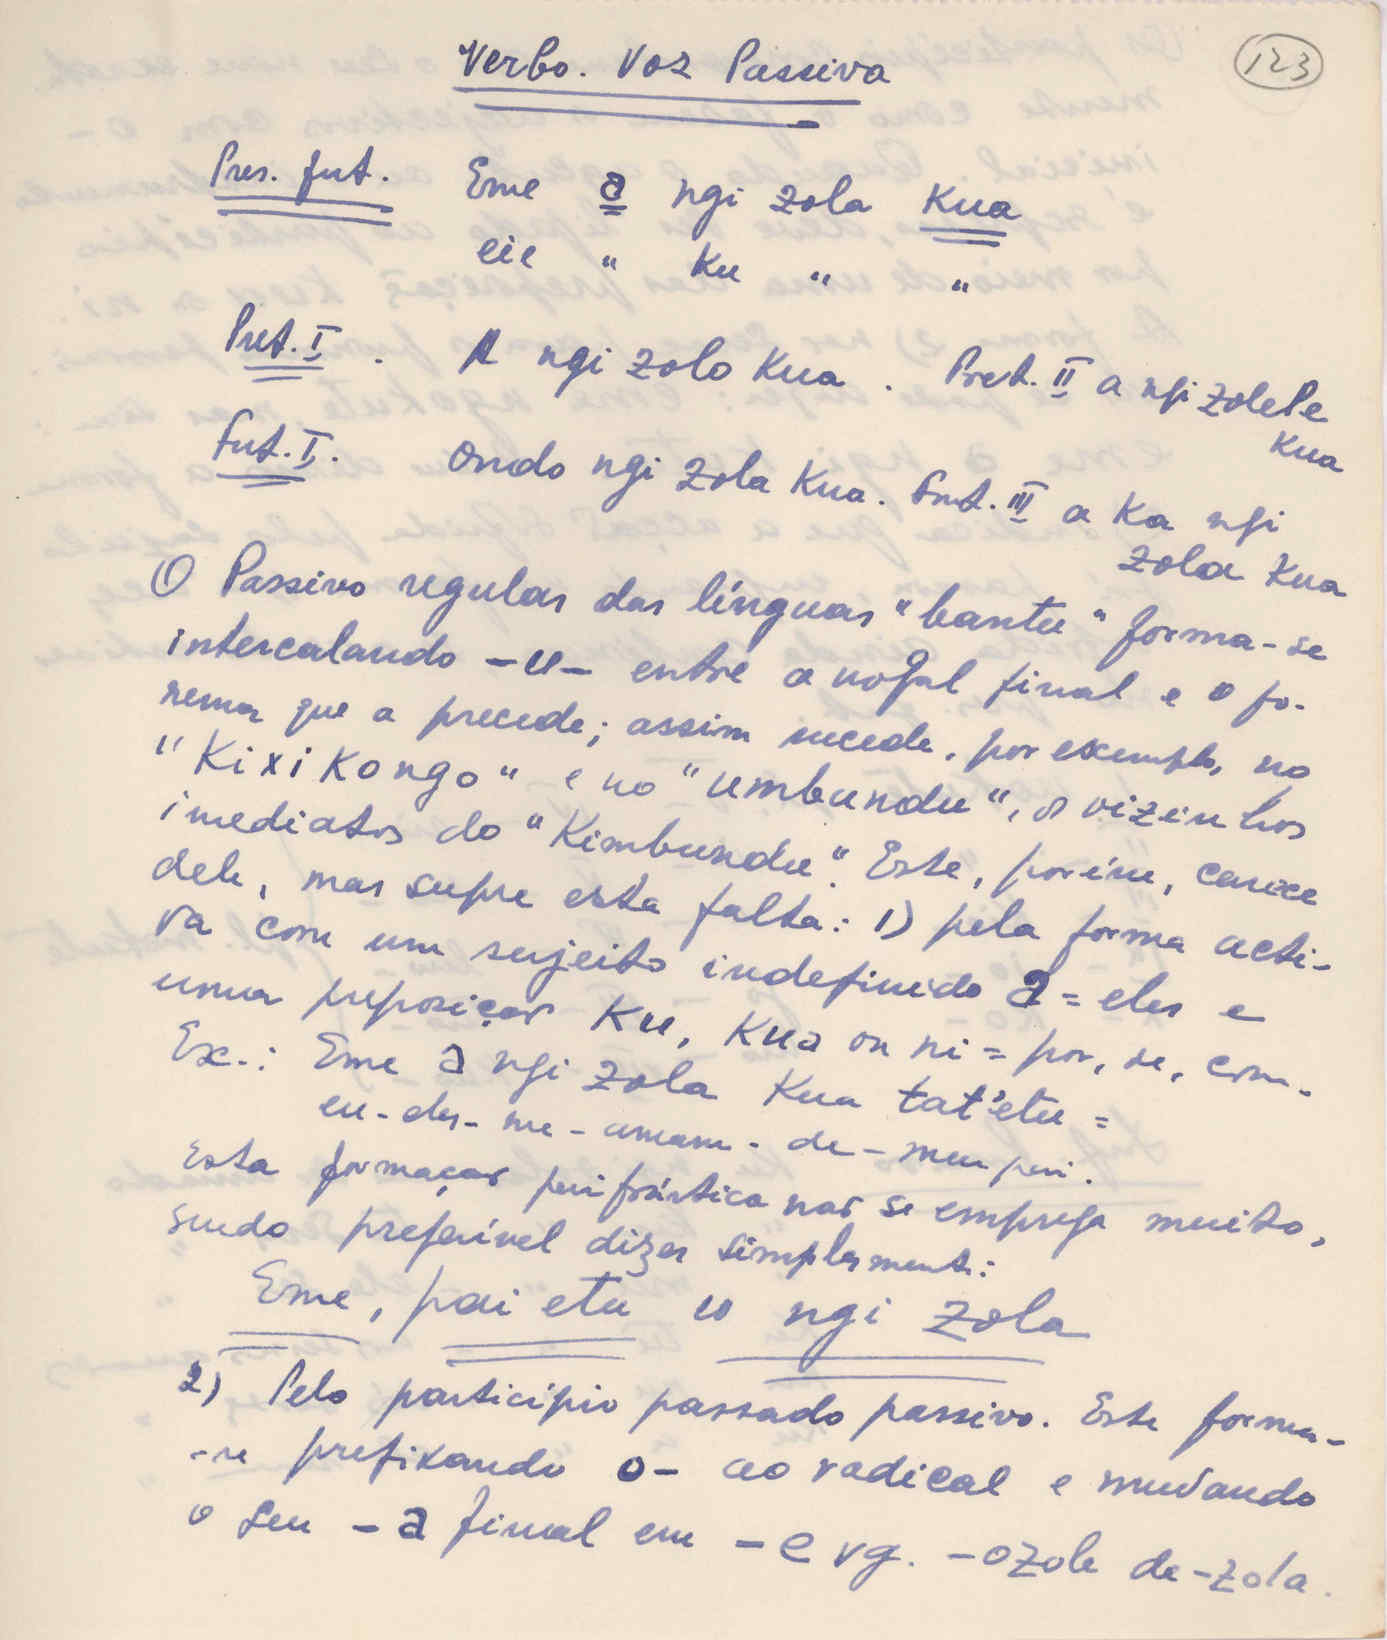 123
Verbo. Voz Passiva
Pres. fut. Eme a ngi zola Kua
eie " Ku " "
Pret. I. A ngi zolo Kua. Pret. II a ngi zolele
Kua
Fut. I. Ondo ngi zola Kua. Fut. III a Ka ngi
zola Kua
O Passivo regular das línguas "bantu" forma-se
intercalando -u- entre a vogal final e o fo-
nema que a precede; assim sucede, por exemplo, no
"Kixikongo" e no "umbundu", os vizinhos
imediatos do "Kimbundu". Este, porém, carece
dele, mas supre esta falta: 1) pela forma acti-
va com um sujeito indefinido a = eles e
uma preposição Ku, Kua ou ni = por, de, com.
Ex.: Eme a ngi zola Kua tat'etu =
eu-eles-me-amam-de-meu pai.
Esta formação perifrástica não se emprega muito,
sendo preferível dizer simplesmente:
Eme, pai etu u ngi zola
2) Pelo particípio passado passivo. Este forma-
-se prefixando o- ao radical e mudando
o seu -a final em -e vg. -ozole de -zola.